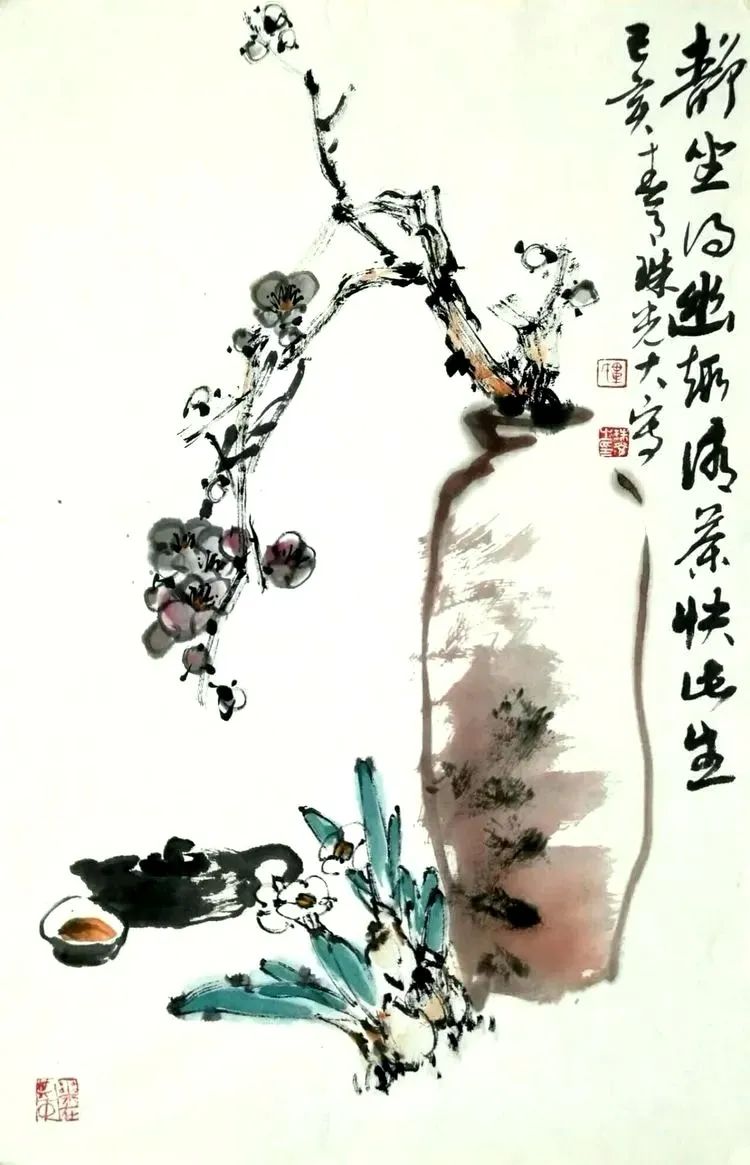 静坐得幽趣清茶快此生
己亥春月珠光大写